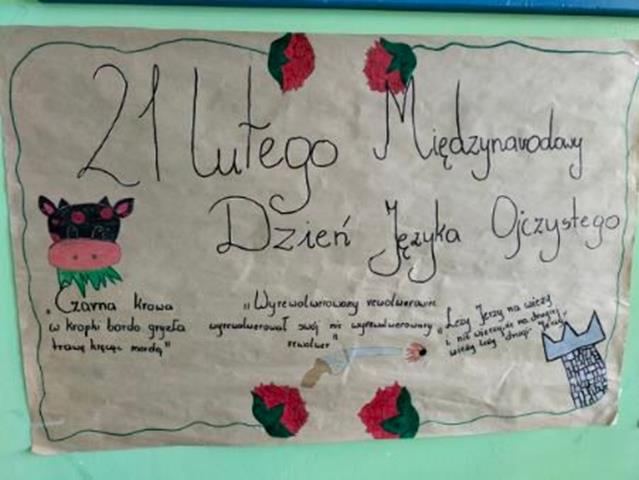 21 lutego Międzynarodowy
Dzień Języka Ojczystego
„Czarna krowa
w kropki bordo gryzła
trawę kręcąc mordą"
„Wyrewolwerowany rewolwerowiec
wyrewolwerował swój nie wyrewolwerowany
rewolwer"
„Leży Jerzy na wieży
i nie wierzy, że na drugiej
wieży leży drugi Jerzy"